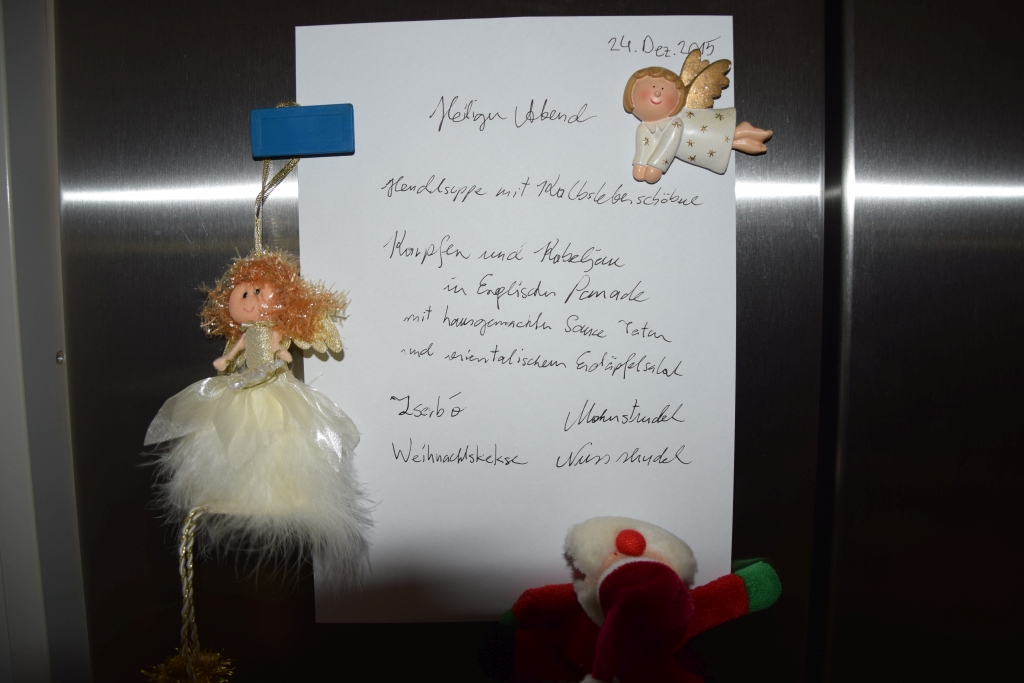 24. Dez. 2015
Heiliger Abend
Hendlsuppe mit Kalbsleberschöberl
Karpfen und Kabeljau
in Englischer Panade
mit hausgemachter Sauce Tatar
und orientalischem Erdäpfelsalat
Zserbó Mohnstrudel
Weihnachtskekse Nussstrudel